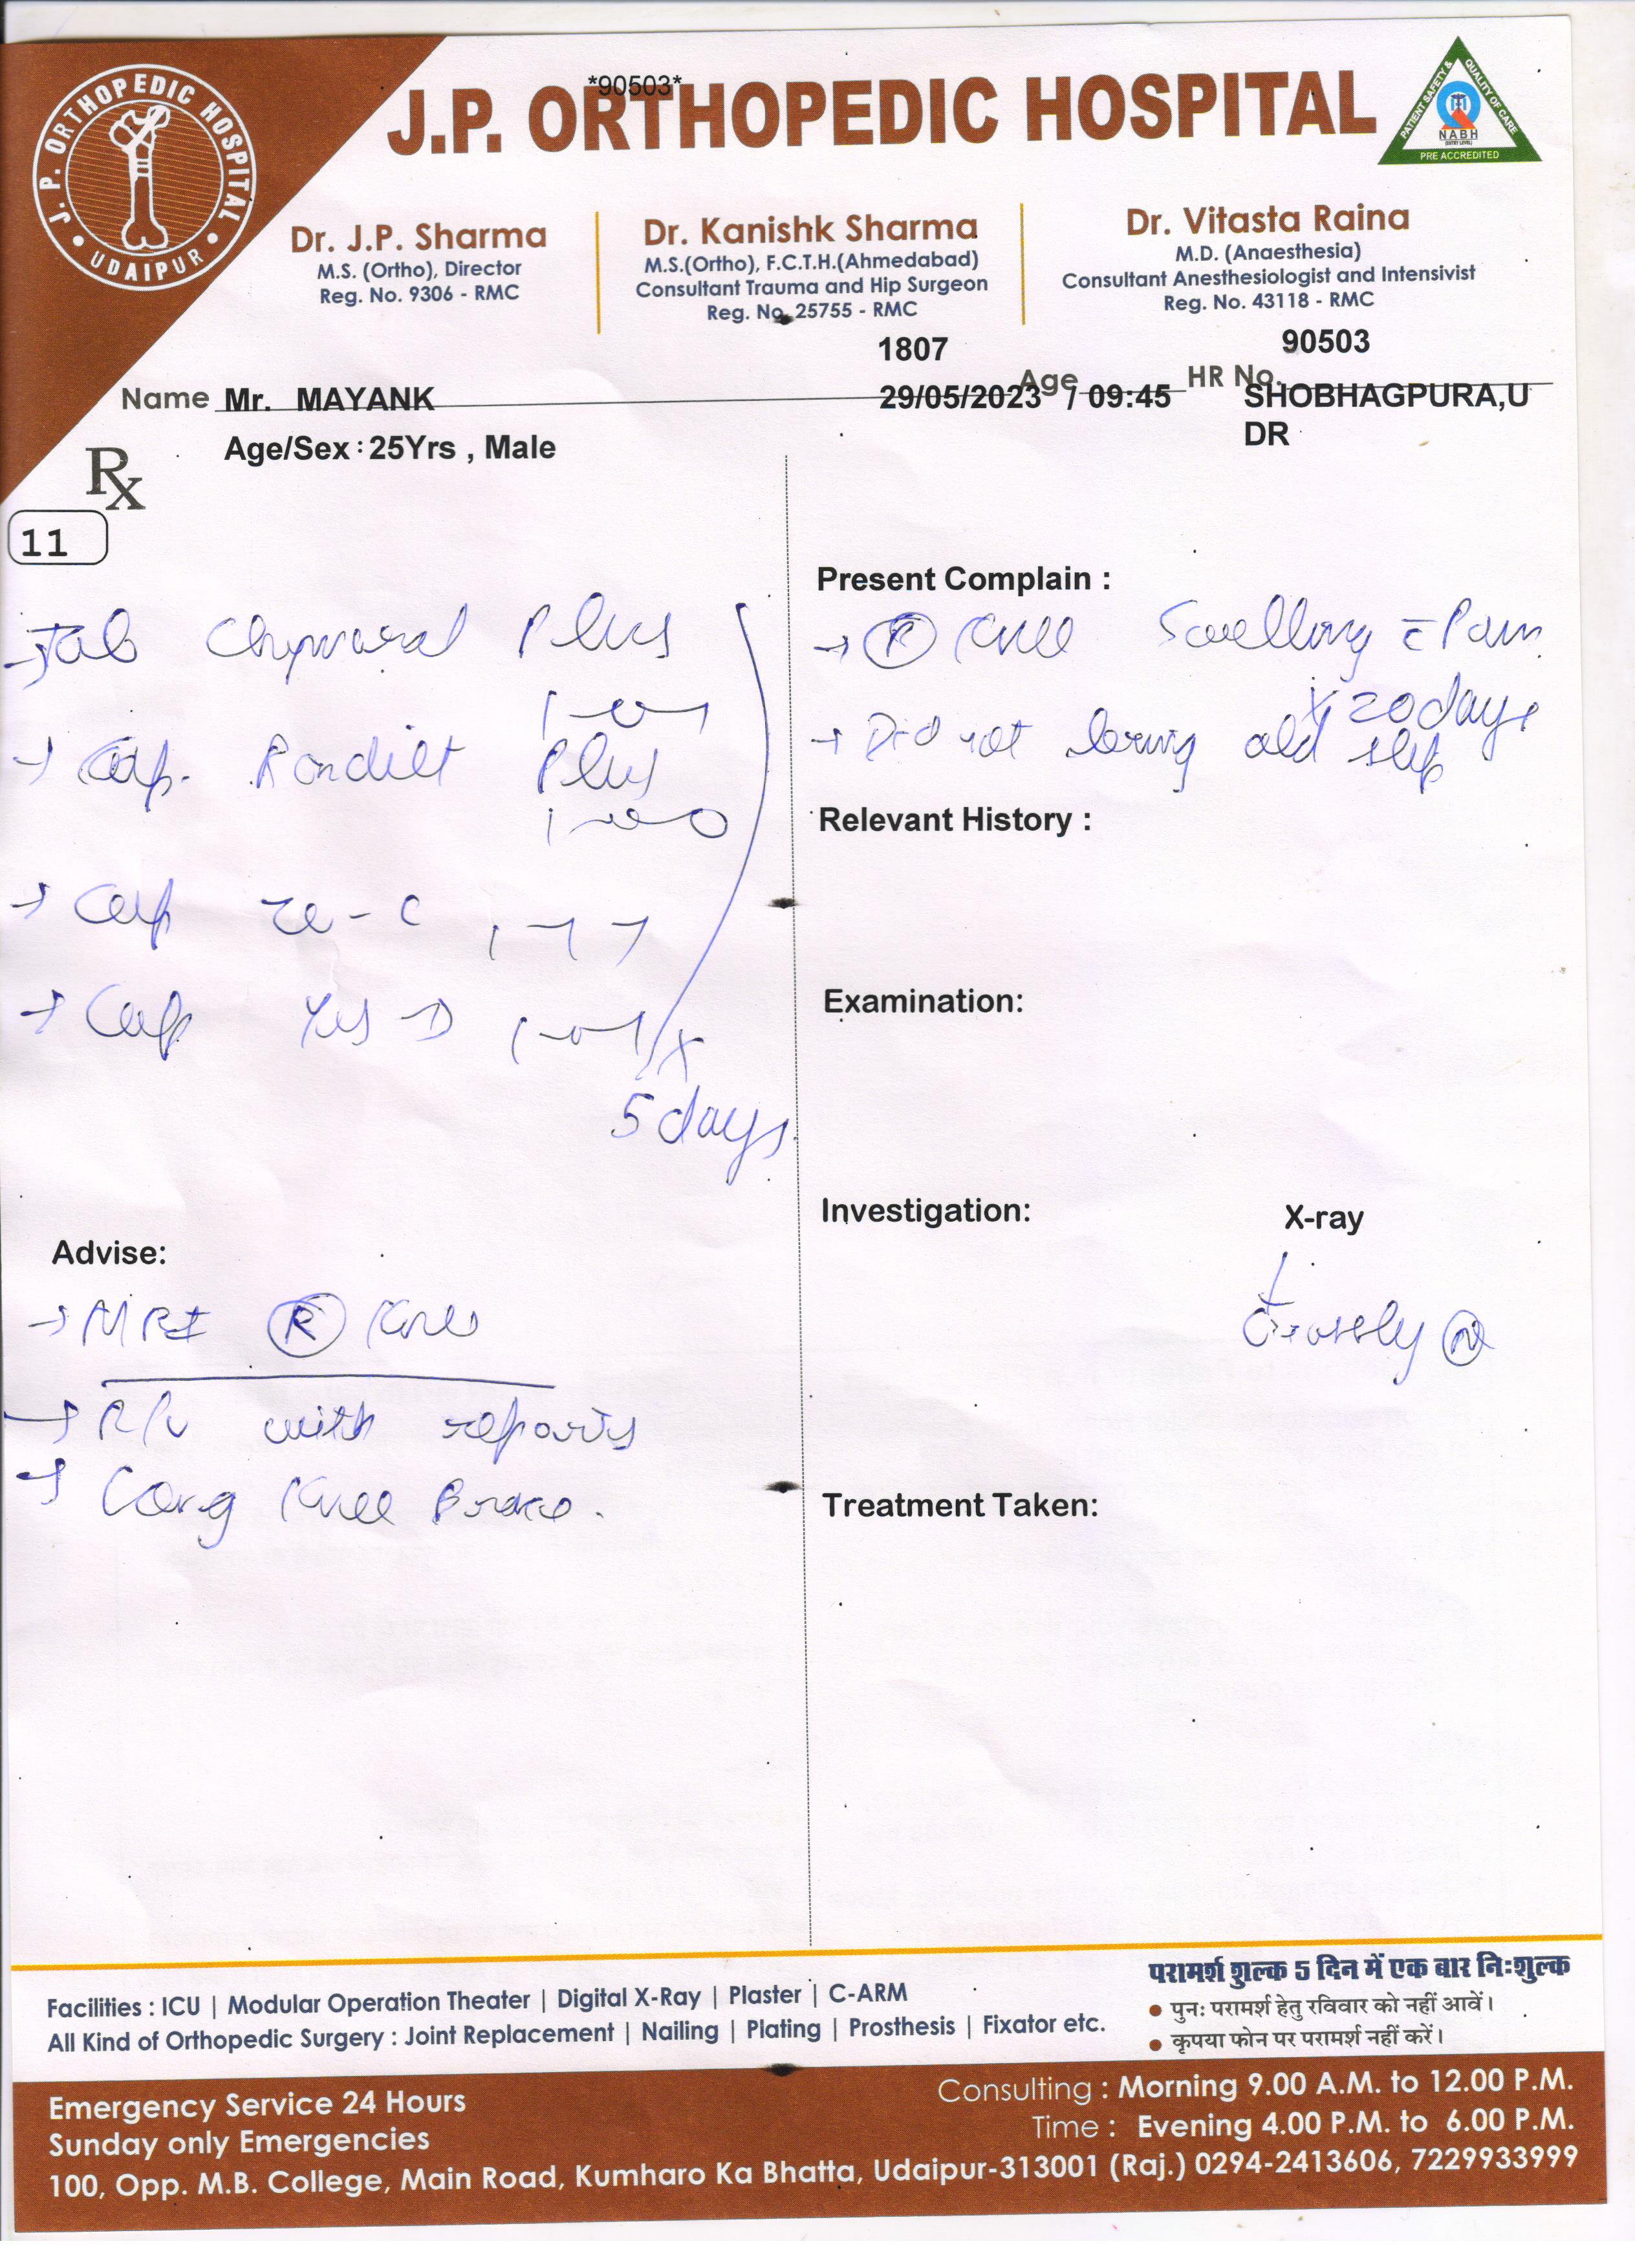 J.P. ORTHOPEDIC HOSPITAL
*90503*
J. P. ORTHOPEDIC HOSPITAL
UDAIPUR
PATIENT SAFETY & QUALITY OF CARE
NABH
(ENTRY LEVEL)
PRE ACCREDITED
Dr. J.P. Sharma
M.S. (Ortho), Director
Reg. No. 9306 - RMC
Dr. Kanishk Sharma
M.S.(Ortho), F.C.T.H.(Ahmedabad)
Consultant Trauma and Hip Surgeon
Reg. No. 25755 - RMC
Dr. Vitasta Raina
M.D. (Anaesthesia)
Consultant Anesthesiologist and Intensivist
Reg. No. 43118 - RMC
1807
90503
Name Mr. MAYANK
Age
HR No.
29/05/2023 / 09:45
SHOBHAGPURA,U
DR
Age/Sex : 25Yrs , Male
Rx
11
→ Tab Plus
→ Cap. Plus
→ Cap
→ Cap
x
5 days
Advise:
→ MRI (R) Knee
→ R/v with reports
→ Long Knee Brace.
Present Complain :
→ (R) Knee Swelling c̄ Pain
x 20 days
→ Did not bring old slip
Relevant History :
Examination:
Investigation:
X-ray
↓
(N)
Treatment Taken:
Facilities : ICU | Modular Operation Theater | Digital X-Ray | Plaster | C-ARM
All Kind of Orthopedic Surgery : Joint Replacement | Nailing | Plating | Prosthesis | Fixator etc.
परामर्श शुल्क 5 दिन में एक बार निःशुल्क
• पुनः परामर्श हेतु रविवार को नहीं आवें।
• कृपया फोन पर परामर्श नहीं करें।
Emergency Service 24 Hours
Sunday only Emergencies
Consulting : Morning 9.00 A.M. to 12.00 P.M.
Time : Evening 4.00 P.M. to 6.00 P.M.
100, Opp. M.B. College, Main Road, Kumharo Ka Bhatta, Udaipur-313001 (Raj.) 0294-2413606, 7229933999